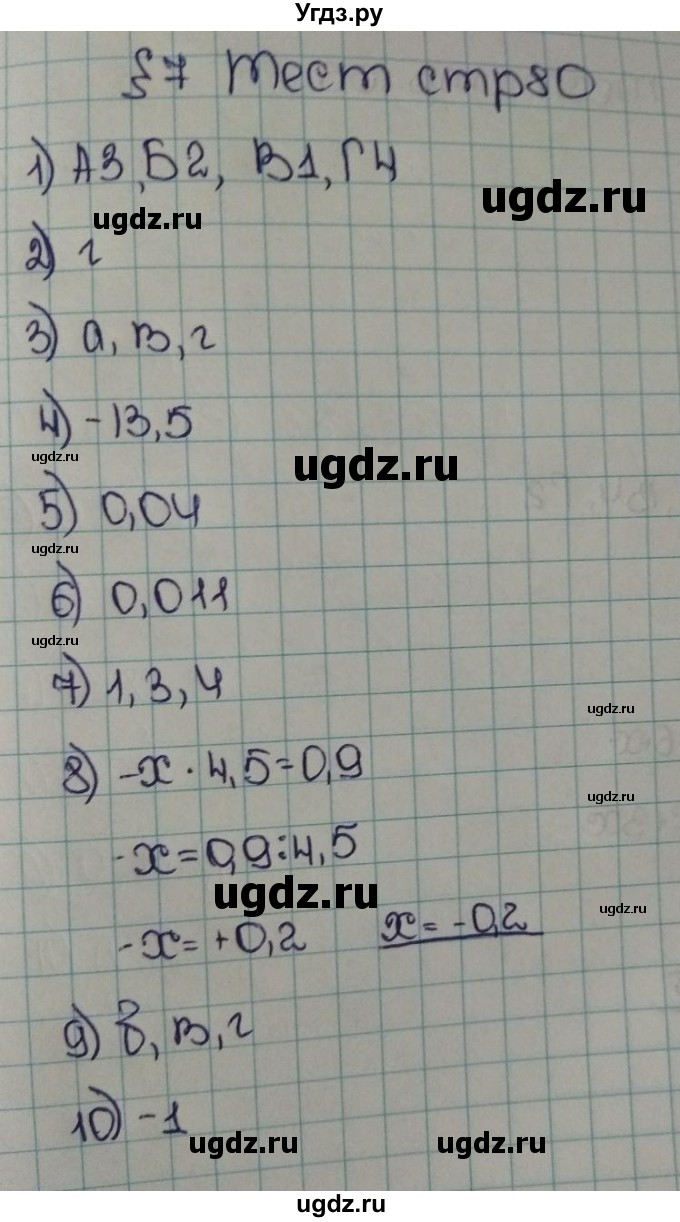 Угдз.ру
§ 7 Тест стр 80
1) А3, Б2, В1, Г4
ugdz.ru
ugdz.ru
2) г
3) а, в, г
4) -13,5
ugdz.ru
ugdz.ru
5) 0,04
ugdz.ru
6) 0,011
ugdz.ru
7) 1, 3, 4
ugdz.ru
8) -x · 4,5 = 0,9
ugdz.ru
-x = 0,9 : 4,5
ugdz.ru
ugdz.ru
-x = +0,2 x = -0,2
9) б, в, г
10) -1
ugdz.ru
ugdz.ru
ugdz.ru